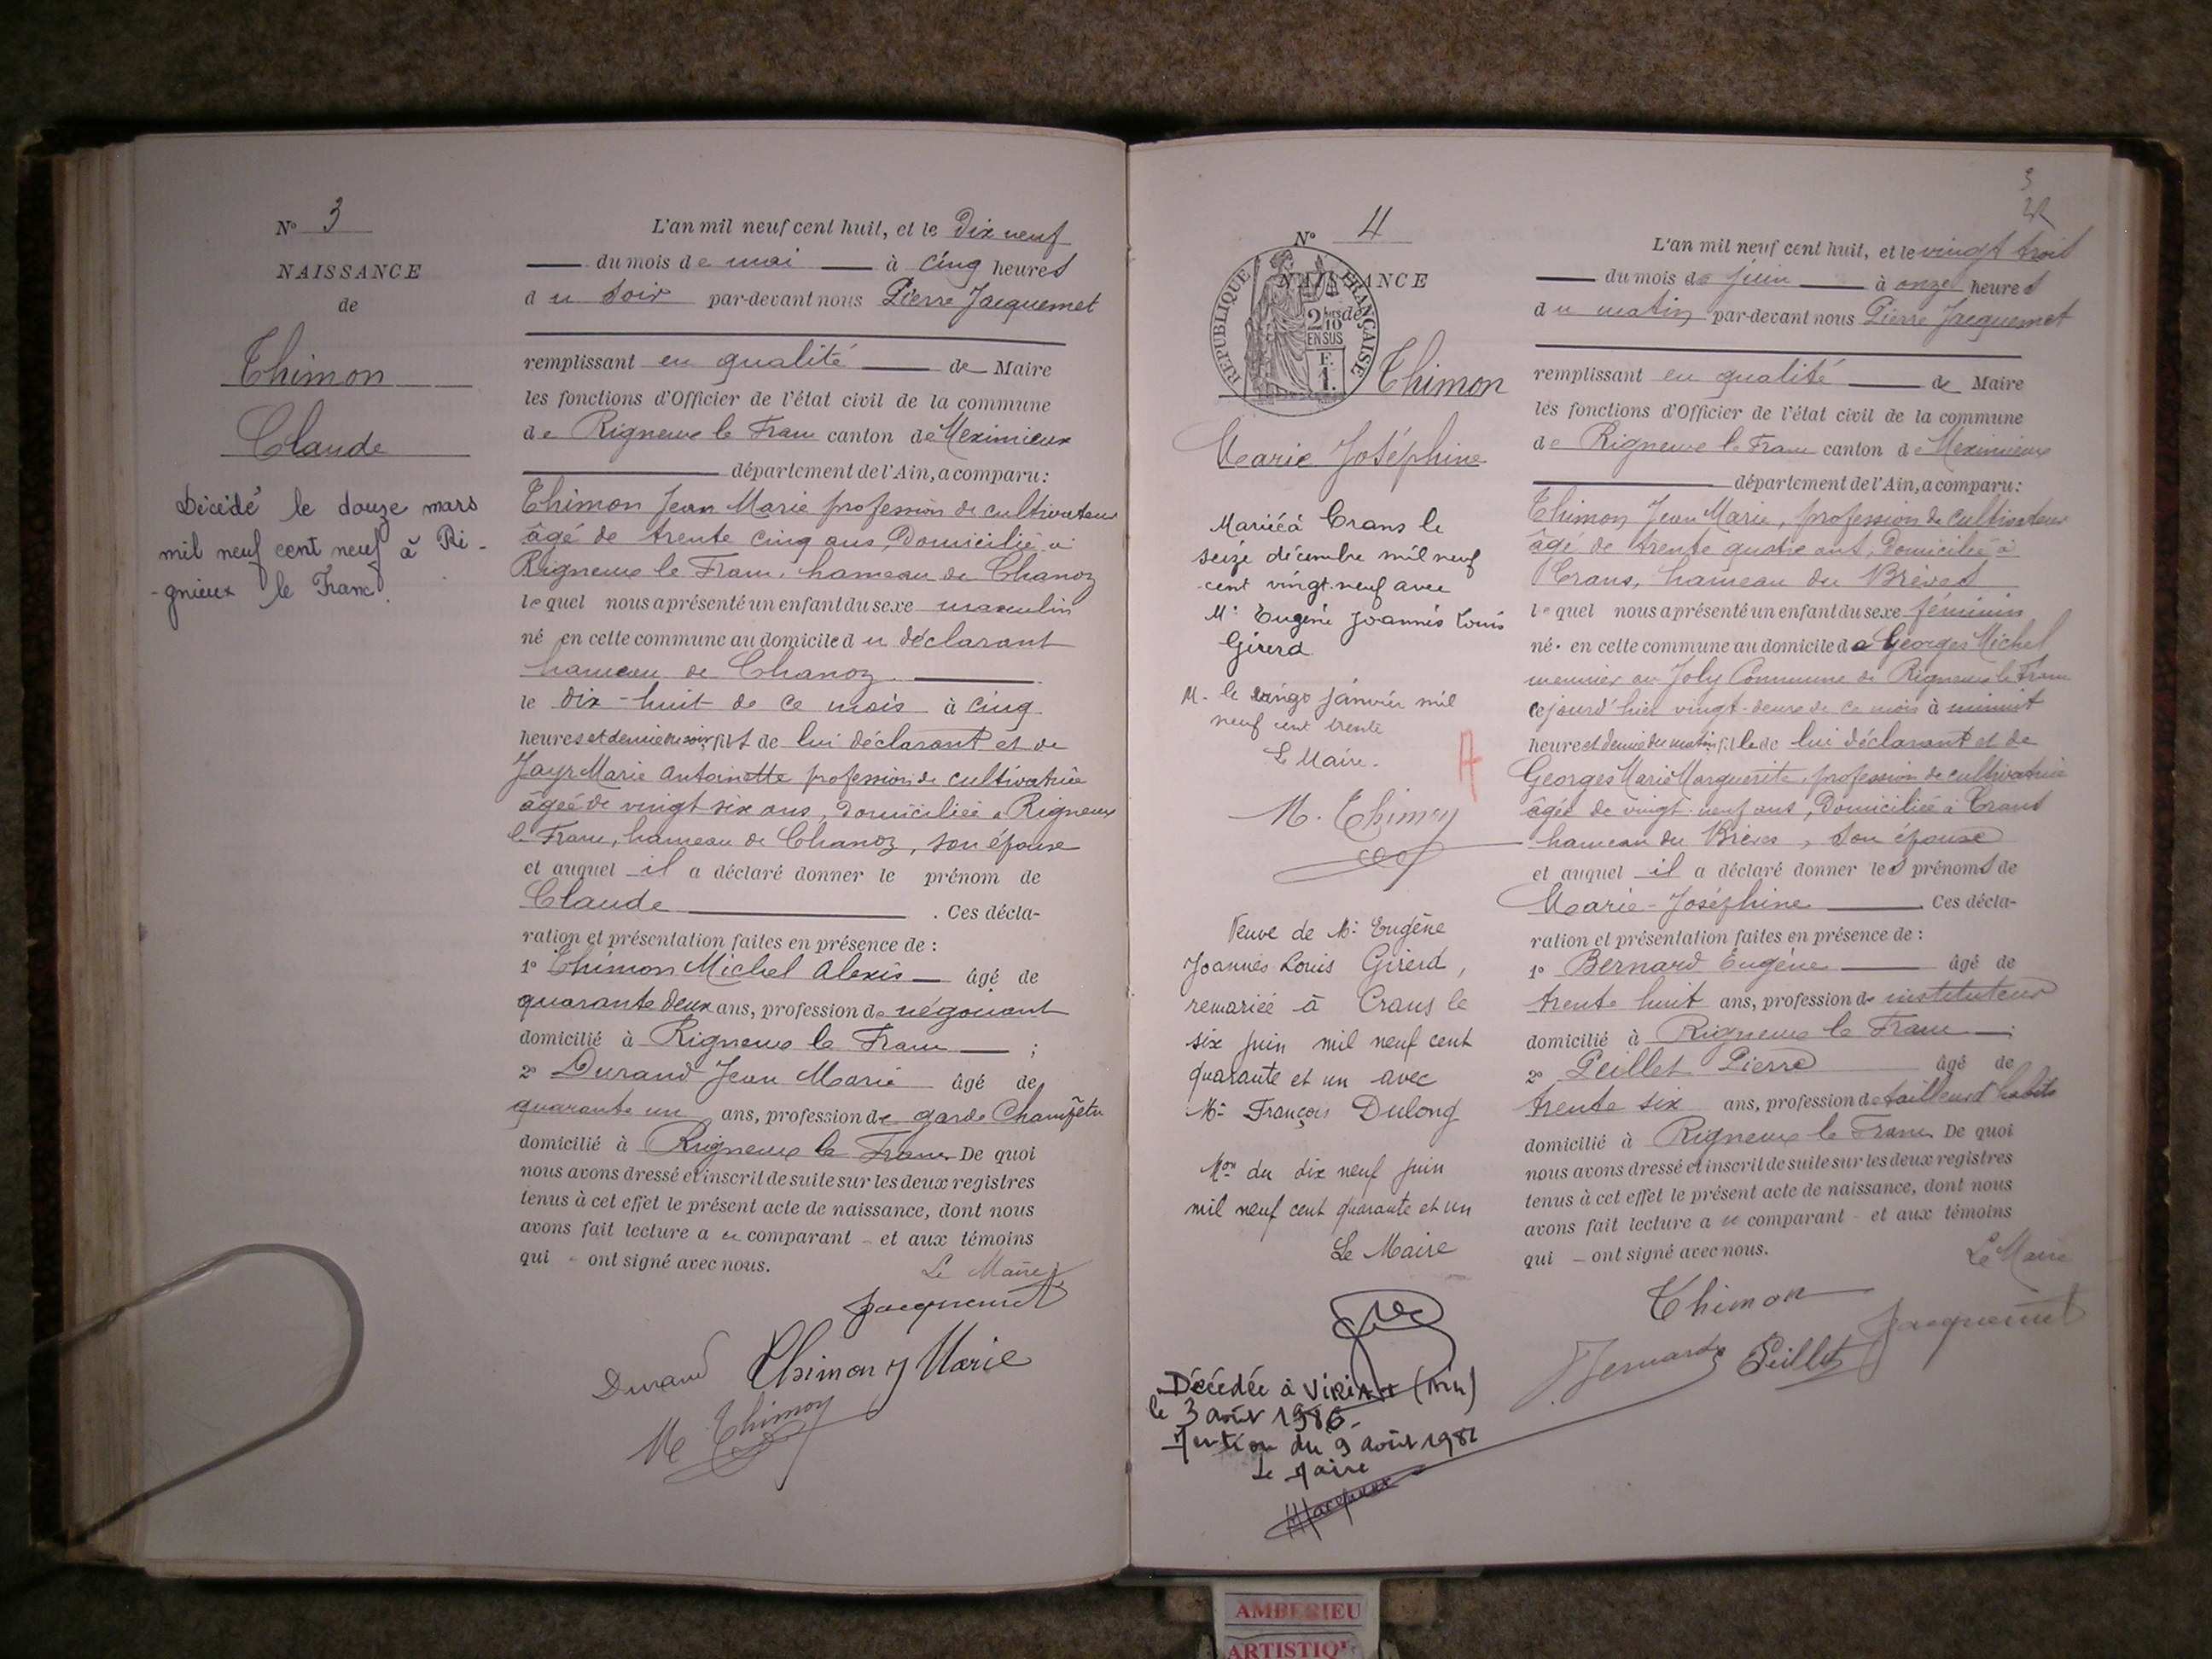 N° 3
NAISSANCE
de
Thimon
Claude
Décédé le douze mars
mil neuf cent neuf à Ri-
-gnieux le Franc.
L'an mil neuf cent huit, et le Dix neuf
du mois de mai à cinq heures
du soir par-devant nous Pierre Jacquemet
remplissant en qualité de Maire
les fonctions d'Officier de l'état civil de la commune
de Rigneux le Franc canton de Meximieux
département de l'Ain, a comparu:
Thimon Jean Marie profession de cultivateur
âgé de trente cinq ans, Domicilié à
Rigneux le Franc, hameau de Chanoz
lequel nous a présenté un enfant du sexe masculin
né en cette commune au domicile du déclarant
hameau de Chanoz.
le dix-huit de ce mois à cinq
heures et demie du soir fils de lui déclarant et de
Jayr Marie Antoinette profession de cultivatrice
âgée de vingt six ans, Domiciliée à Rigneux
le Franc, hameau de Chanoz, son épouse
et auquel il a déclaré donner le prénom de
Claude . Ces décla-
ration et présentation faites en présence de :
1° Thimon Michel Alexis âgé de
quarante deux ans, profession de négociant
domicilié à Rigneux le Franc ;
2° Durand Jean Marie âgé de
quarante un ans, profession de garde Champêtre
domicilié à Rigneux le Franc De quoi
nous avons dressé et inscrit de suite sur les deux registres
tenus à cet effet le présent acte de naissance, dont nous
avons fait lecture au comparant - et aux témoins
qui - ont signé avec nous.
Le Maire
Jacquemet
Durand Thimon J Marie
M Thimon
3
N° 4
NAISSANCE
de
RÉPUBLIQUE FRANÇAISE
2/10
EN SUS
F.
1.
Thimon
Marie Joséphine
Mariée à Crans le
seize décembre mil neuf
cent vingt-neuf avec
Mr Eugène Joannès Louis
Girerd
M. le vingt janvier mil
neuf cent trente
Le Maire.
M. Thimon
Veuve de Mr Eugène
Joannès Louis Girerd,
remariée à Crans le
six juin mil neuf cent
quarante et un avec
Mr François Dulong
Mon du dix neuf juin
mil neuf cent quarante et un
Le Maire
Décédée à VIRIAT (Ain)
le 3 août 1986.
Mention du 9 août 1986
Le Maire
L'an mil neuf cent huit, et le vingt trois
du mois de juin à onze heures
du matin par-devant nous Pierre Jacquemet
remplissant en qualité de Maire
les fonctions d'Officier de l'état civil de la commune
de Rigneux le Franc canton de Meximieux
département de l'Ain, a comparu:
Thimon Jean Marie, profession de cultivateur
âgé de trente quatre ans, Domicilié à
Crans, hameau du Brèves
lequel nous a présenté un enfant du sexe féminin
né en cette commune au domicile de Georges Michel
meunier au Joly Commune de Rigneux le Franc
vingt-deux de ce mois à minuit
heure et demie du matin fille de lui déclarant et de
Georges Marie Marguerite, profession de cultivatrice
âgée de vingt-neuf ans, Domiciliée à Crans
hameau du Brèves, son épouse
et auquel il a déclaré donner les prénoms de
Marie-Joséphine Ces décla-
ration et présentation faites en présence de :
1° Bernard Eugène âgé de
trente huit ans, profession de instituteur
domicilié à Rigneux le Franc ;
2° Peillet Pierre âgé de
trente six ans, profession de tailleur d'habits
domicilié à Rigneux le Franc De quoi
nous avons dressé et inscrit de suite sur les deux registres
tenus à cet effet le présent acte de naissance, dont nous
avons fait lecture au comparant - et aux témoins
qui - ont signé avec nous.
Le Maire
Thimon
Jacquemet
Bernard Peillet
AMBERIEU
ARTISTIQU